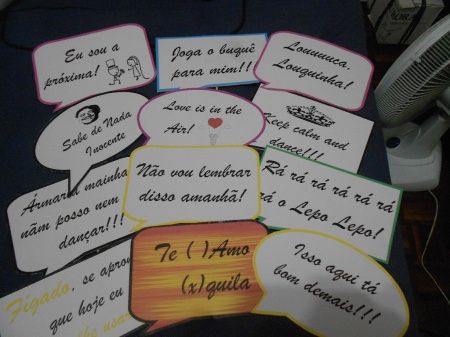 Eu sou a
próxima!
Joga o buquê
para mim!!!
Louuuuca,
Louquinha!
Sabe de Nada
Inocente
Love is in the
Air!
Keep calm and
dance!!!
Ármaria mainha
nãm posso nem
dançar!!!
Não vou lembrar
disso amanhã!
Rá rá rá rá rá rá
rá o Lepo Lepo!
Fígado, se apro
que hoje eu
usar
Te ( )Amo
(x)quila
Isso aqui tá
bom demais!!!